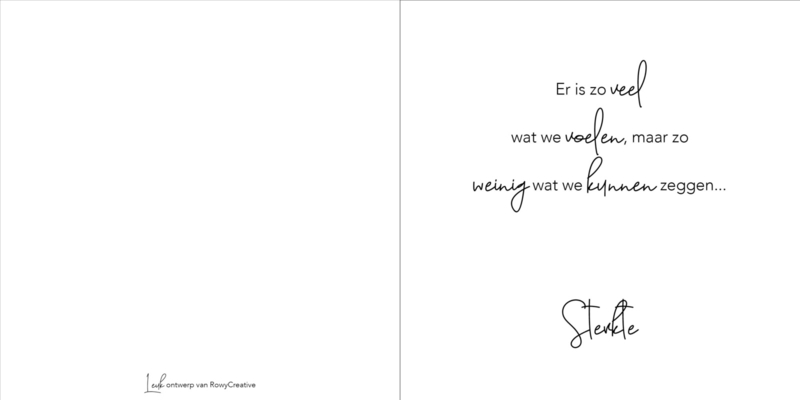 Er is zo veel
wat we voelen, maar zo
weinig wat we kunnen zeggen...
Sterkte
Leuk ontwerp van RowyCreative